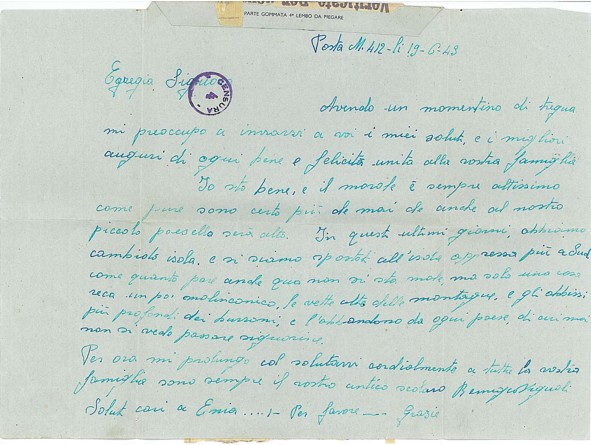 Verificato per
PARTE GOMMATA 4º LEMBO DA PIEGARE
Posta M. 412 - li 19-6-43
Egregia Signora
CENSURA
Avendo un momentino di tregua
mi preoccupo a inviarvi a voi i miei saluti, e i migliori
auguri di ogni bene e felicità unita alla vostra famiglia
Io sto bene, e il morale è sempre altissimo
come pure sono certo più che mai che anche al nostro
piccolo paesello sarà alto. In questi ultimi giorni, abbiamo
cambiato isola, e si siamo spostati all'isola appresso più a Sud
come quanto pare anche qua non si sta male, ma solo una cosa
reca un poi malinconico, le vette alte delle montagne, e gli abissi
più profondi dei burroni, e l'abbandono da ogni paese, di cui mai
non si vede passare signorine.
Per ora mi prolungo col salutarvi cordialmente a tutta la vostra
famiglia sono sempre il vostro antico scolaro Remigio
Saluti cari a Enia ....- Per favore — Grazie